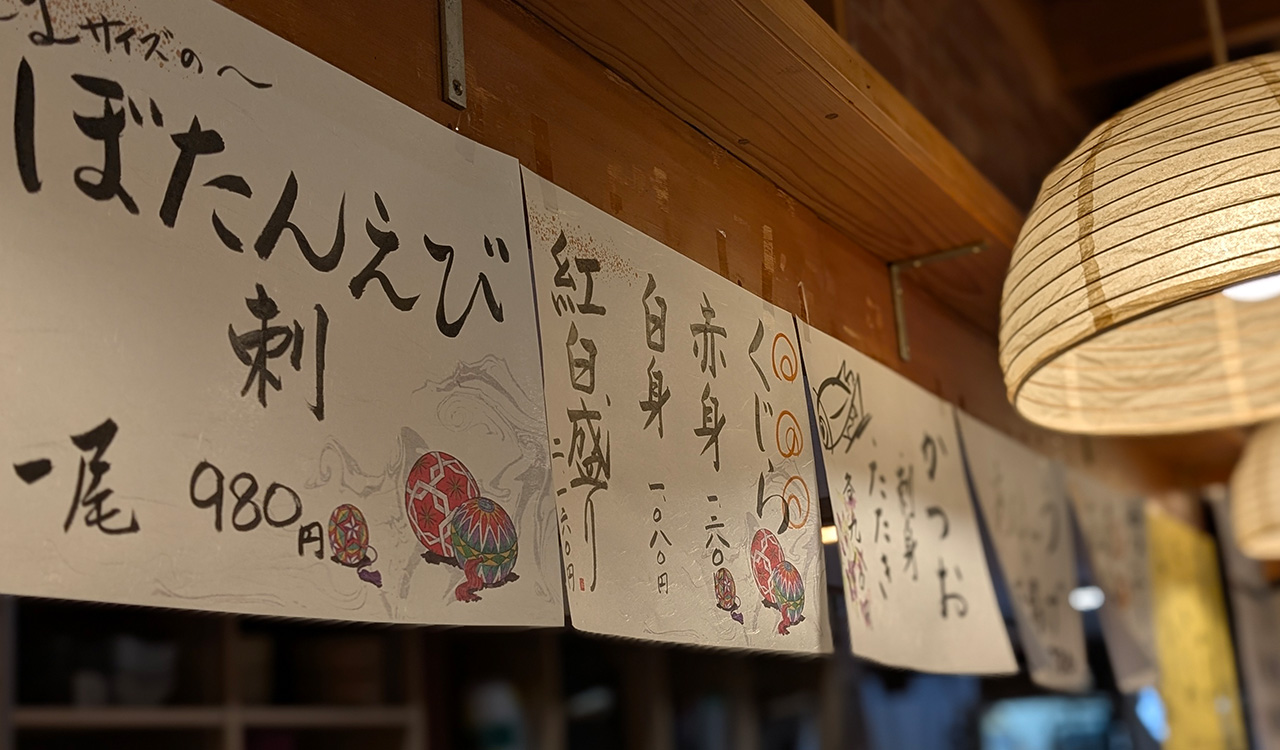 Lサイズの〜
ぼたんえび
刺
一尾 980円
くじら
赤身 一二八〇
白身 一〇八〇円
紅白盛り 二一六〇円
かつお
刺身
たたき